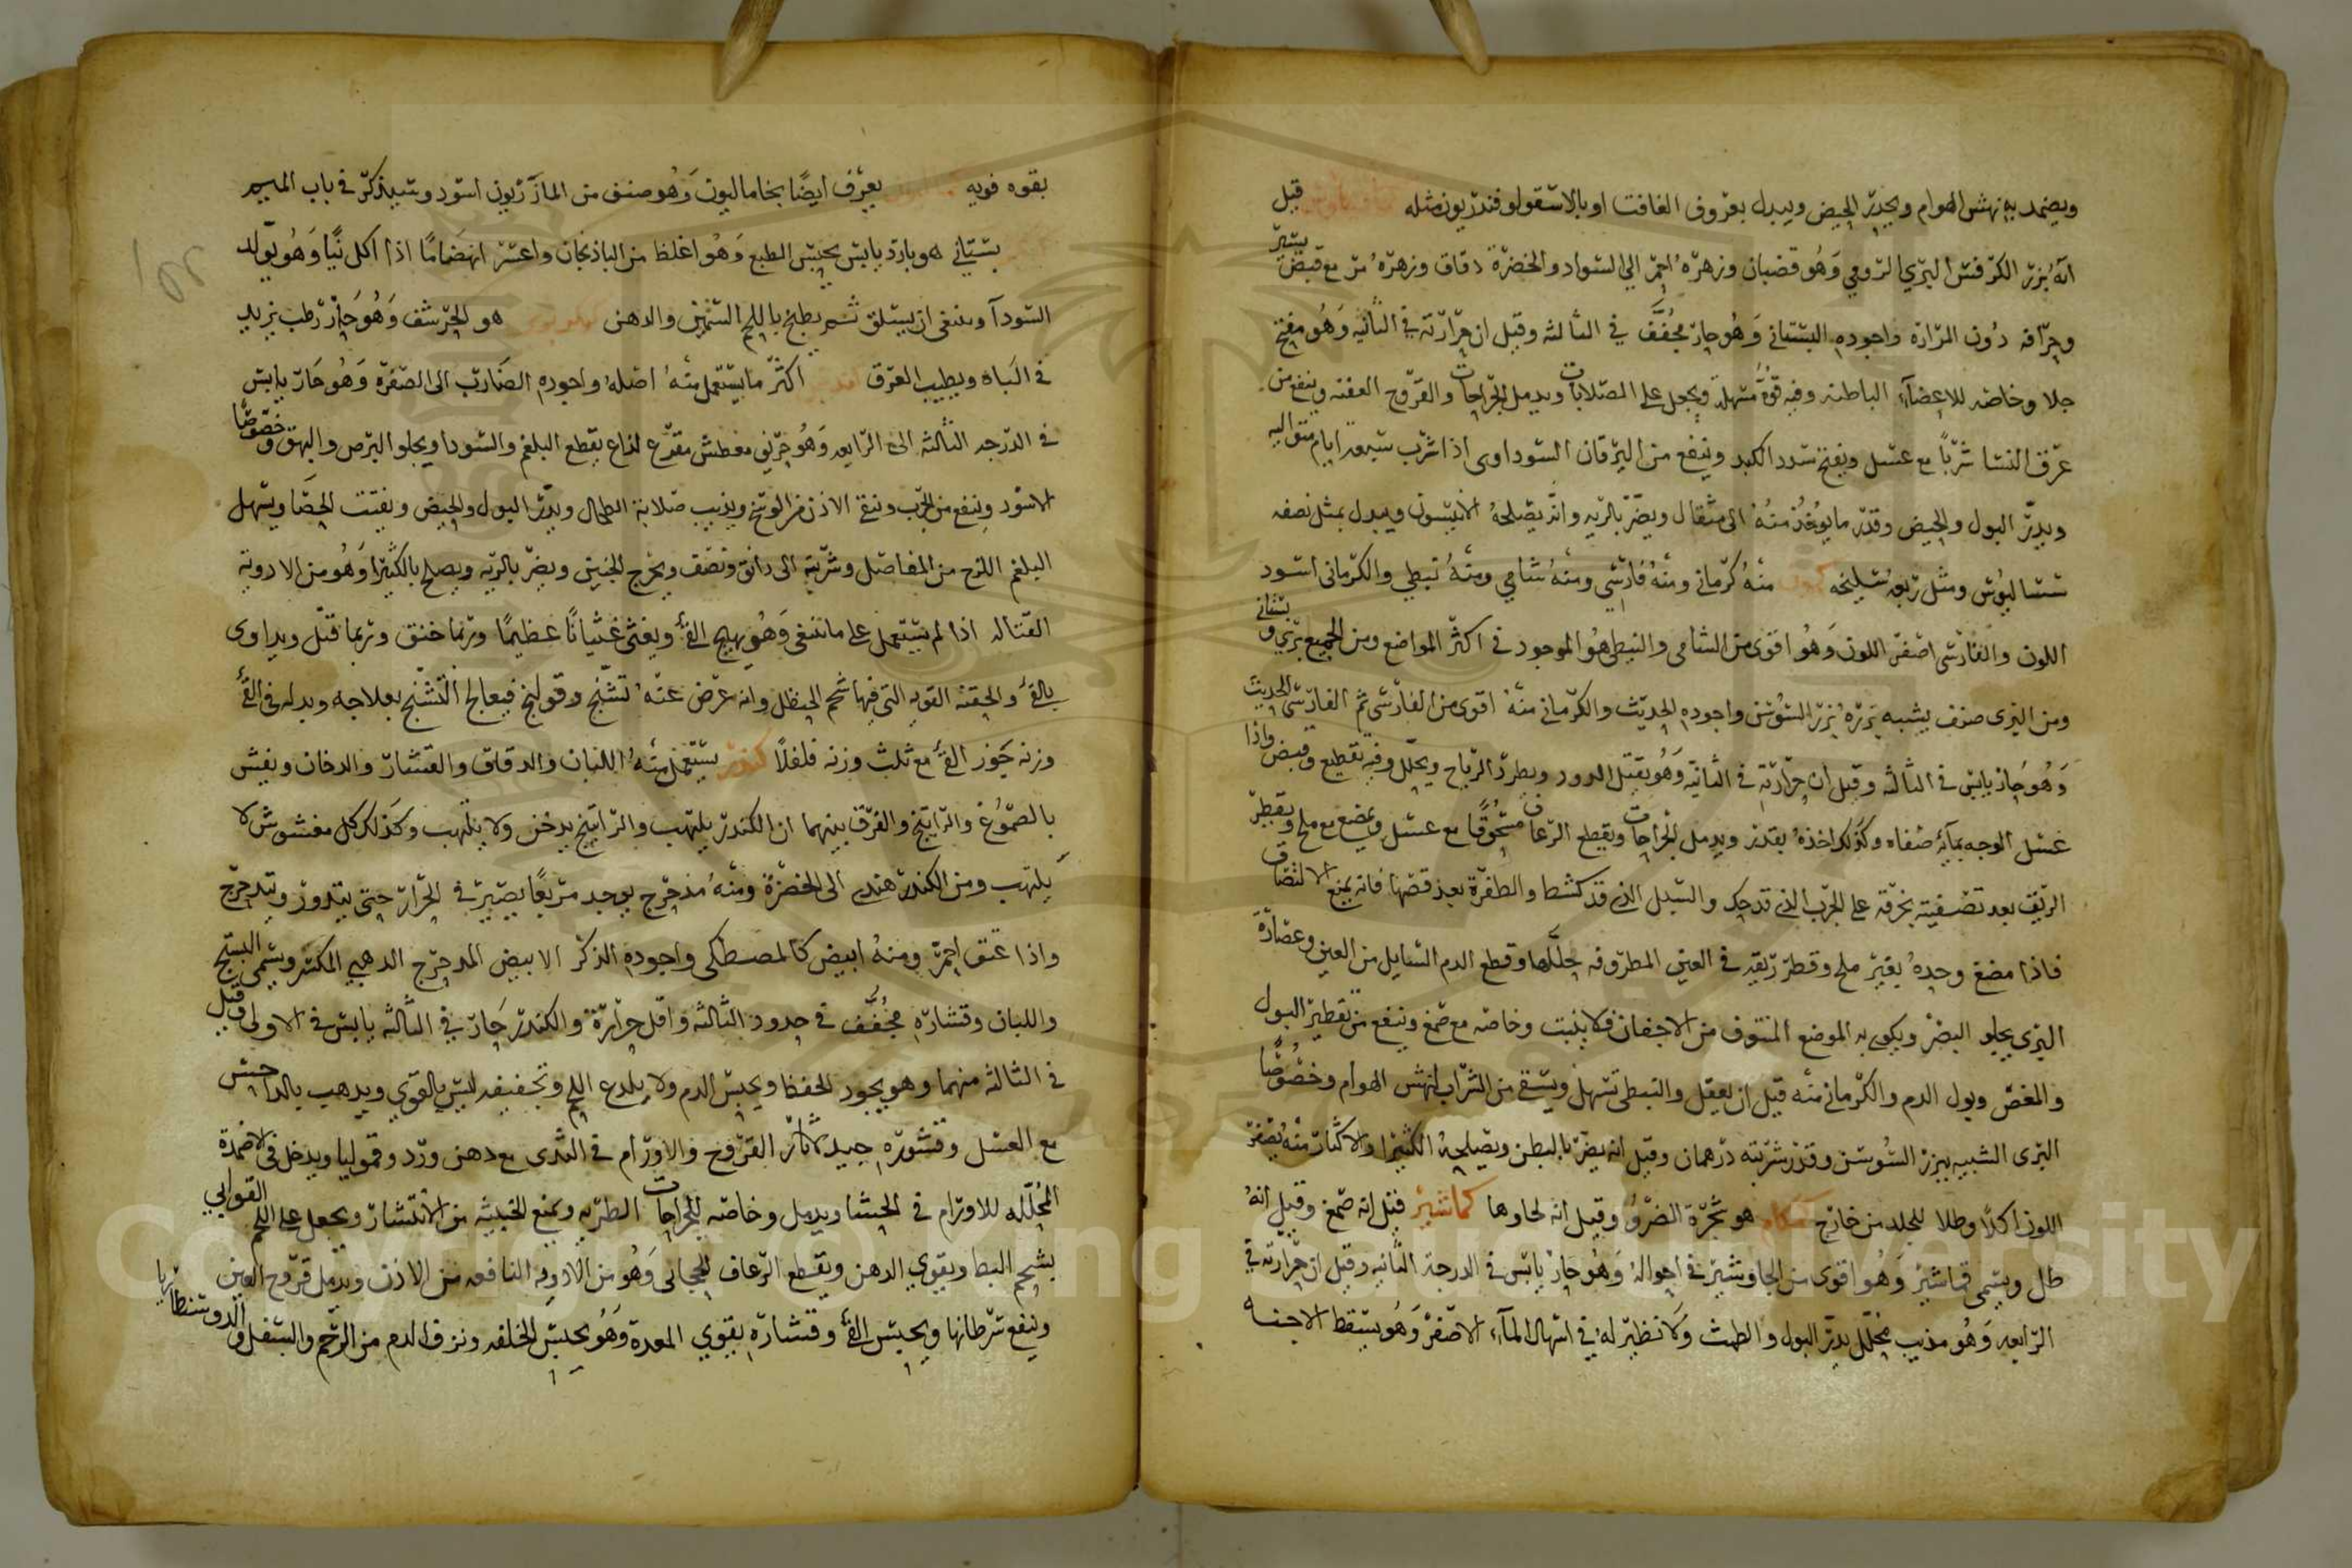 ويضمد به نهش الهوام ويحدر الحيض ويبدل بعروق الغافت او بالاسقولوفندريون مثله قيل
انه بزر الكرفس البري الرومي وهو قضبان وزهره احمر الى السواد والخضرة دقاق وزهره مر مع قبض يسير
وحرافه دون المرارة واجوده البستاني وهو حار مجفف في الثالثه وقيل ان حرارته في الثانيه وهو مفتح
جلا وخاصه للاعضآء الباطنه وفيه قوة مسهلة ويجعل على الصلابات ويدمل الجراحات والقروح العفنه وينفع من
عرق النسا شربا مع عسل ويفتح سدد الكبد وينفع من اليرقان السوداوى اذا شرب سبعة ايام متواليه
ويدر البول والحيض وقدر ما يوخذ منه الى مثقال ويضر بالريه وانه يصلحه الانيسون ويبدل بمثل نصفه
سساليوس ومثل ربعه سليخه كمون منه كرماني ومنه فارسي ومنه شامي ومنه نبطي والكرمانى اسود
اللون والفارسى اصفر اللون وهو اقوى من الشامى والنبطى هو الموجود في اكثر المواضع ومن الجميع بري وبستاني
ومن البرى صنف يشبه بزره بزر السوسن واجوده الحديث والكرماني منه اقوى من الفارسى ثم الفارسى الحديث
وهو حار يابس في الثالثه وقيل ان حرارته في الثانيه وهو يقتل الدود ويطرد الرياح ويحلل وفيه تقطيع وقبض واذا
غسل الوجه بمآئه صفاه وكذلك اخذه بقدر ويدمل الجراحات ويقطع الرعاف مسحوقا مع عسل ويمضغ مع ملح ويقطر
الريق بعد تصفيته بخرقه على الجرب الذي قد حك والسبل الذي قد كشط والظفرة بعد قصها فانه يمنع الالتصاق
فاذا مضغ وحده بغير ملح وقطر ريقه في العين المطروفه حللها وقطع الدم السايل من العين وعصارة
البرى يجلو البصر ويكوى به الموضع المنتوف من الاجفان فلا ينبت وخاصه مع صمغ وينفع من تقطير البول
والمغص وبول الدم والكرماني منه قيل ان يعقل والنبطى تسهل ويسقى من الشراب لنهش الهوام وخصوصا
البرى الشبيه ببزر السوسن وقدر شربته درهمان وقيل انه يضر بالبطن ويصلحه الكثيرا والاكثار منه يصفر
اللون اكلا وطلا للجلد من خارج كمكام هو شجرة الضرو وقيل انه لحاوها كماشير قيل انه صمغ وقيل انه
طل ويسمى قماشير وهو اقوى من الجاوشير في احواله وهو حار يابس في الدرجة الثانيه وقيل ان حرارته في
الرابعه وهو مذيب محلل يدر البول والطمث ولا نظير له في اسهال المآء الاصفر وهو يسقط الاجنه
بقوه قويه يعرف ايضا بخاماليون وهو صنف من المازريون اسود وسيذكر في باب الميم
بستاني هو بارد يابس يحبس الطبع وهو اغلظ من الباذنجان واعسر انهضاما اذا اكل نيا وهو يولد
السودآ وينبغى ان يسلق ثم يطبخ باللحم السمين والدهن هو الحرشف وهو حار رطب يزيد
في الباه ويطيب العرق اكثر ما يستعمل منه اصله واجوده الضارب الى الصفره وهو حار يابس
في الدرجه الثالثه الى الرابعه وهو حريف معطش مقرح لذاع يقطع البلغم والسودا ويجلو البرص والبهق وخصوصا
الاسود وينفع من الجرب وينقى الاذن من الوسخ ويذيب صلابة الطحال ويدر البول والحيض ويفتت الحصا ويسهل
البلغم اللزج من المفاصل وشربته الى دانق ونصف ويخرج الجنين ويضر بالريه ويصلح بالكثيرا وهو من الادويه
القتاله اذا لم يستعمل على ما ينبغى وهو يهيج القئ ويغثى غثيانا عظيما وربما خنق وربما قتل ويداوى
بالقئ والحقنه القويه التى فيها شحم الحنظل وانه عرض عنه تشنج وقولنج فيعالج التشنج بعلاجه وبدله فى القئ
وزنه جوز القئ مع ثلث وزنه فلفلا كندر يستعمل منه اللبان والدقاق والقشار والدخان ويغش
بالصموغ والراتينج والفرق بينهما ان الكندر يلتهب والراتينج يدخن ولا يلتهب وكذلك كل مغشوش لا
يلتهب ومن الكندر هندى الى الخضرة ومنه مدحرج يوجد مربعا يصير في الجرار حتى يتدور ويتدحرج
واذا عتق احمر ومنه ابيض كالمصطكى واجوده الذكر الابيض المدحرج الدهبي المكسر ويسمى البستج
واللبان وقشاره مجفف في حدود الثالثه واقل حرارة والكندر حار في الثالثه يابس في الاولى وقيل
في الثالثه منهما وهو يجود للحفظ ويحبس الدم ولا يلدع اللحم وتجفيفه ليس بالقوي ويدهب بالداحس
مع العسل وقشوره جيد لآثار القروح والاورام في الثدى مع دهن ورد وقموليا ويدخل في الاضمدة
المحلله للاورام في الحشا ويدمل وخاصه للجراحات الطريه ويمنع الخبيثه من الانتشار ويجعل على القوابي
بشحم البط ويقوي الدهن ويقطع الرعاف الحجابي وهو من الادويه النافعه من الاذن ويدمل قروح العين
وينفع سرطانها ويحبس القئ وقشاره يقوي المعدة وهو يحبس الخلفه ونزف الدم من الرحم والسفل والدوسنطاريا